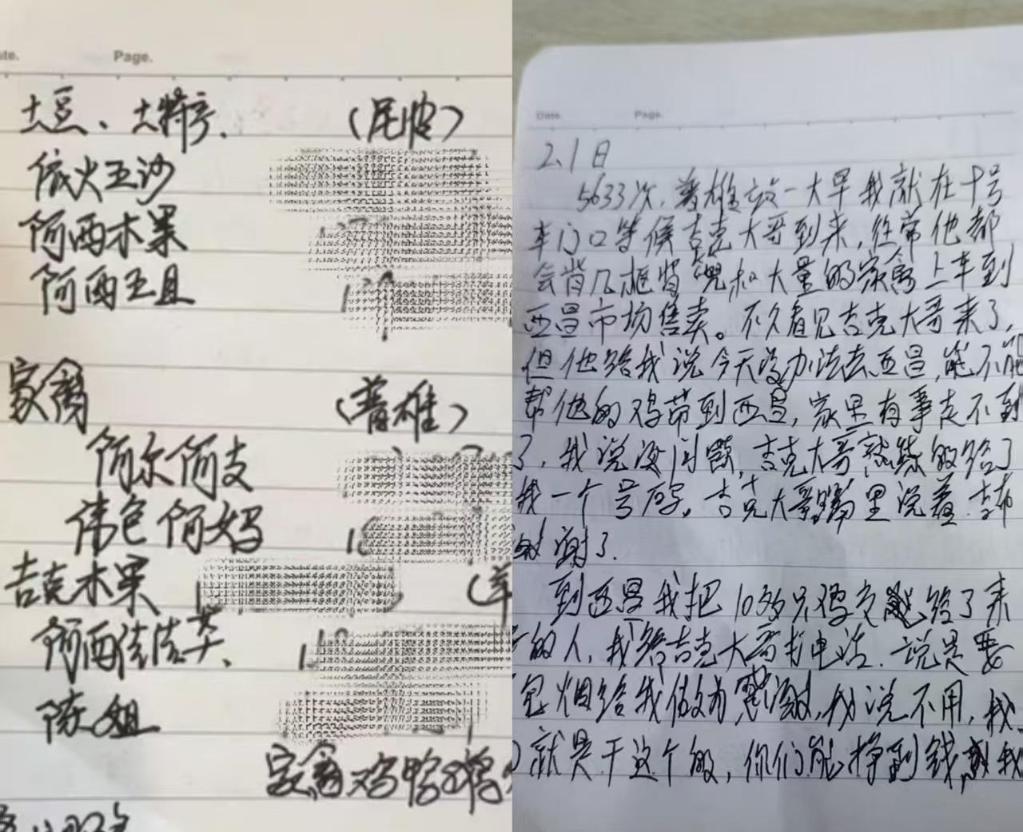 Page.
土豆、土特产.（尼波）
依火五沙
阿西木果
阿西五且
家禽（普雄）
阿尔阿支
阿妈
吉克木果
阿西
陈姐
家禽鸡鸭
Date. Page.
2.1日
5633次,普雄站一大早我就在十号
车门口等候吉克大哥到来,往常他都
会背几框背兜和大量的家禽上车到
西昌市场售卖。不久看见吉克大哥来了,
但他给我说今天没办法去西昌,能不能
帮他的鸡带到西昌,家里有事走不到
了,我说没问题,吉克大哥熟练的给了
我一个号码,吉克大哥嘴里说着
谢了.
到西昌我把10多只鸡交给了来
的人,我给吉克大哥打电话.说是要
包烟给我做为感谢,我说不用,我
就是干这个的,你们能挣到钱,我